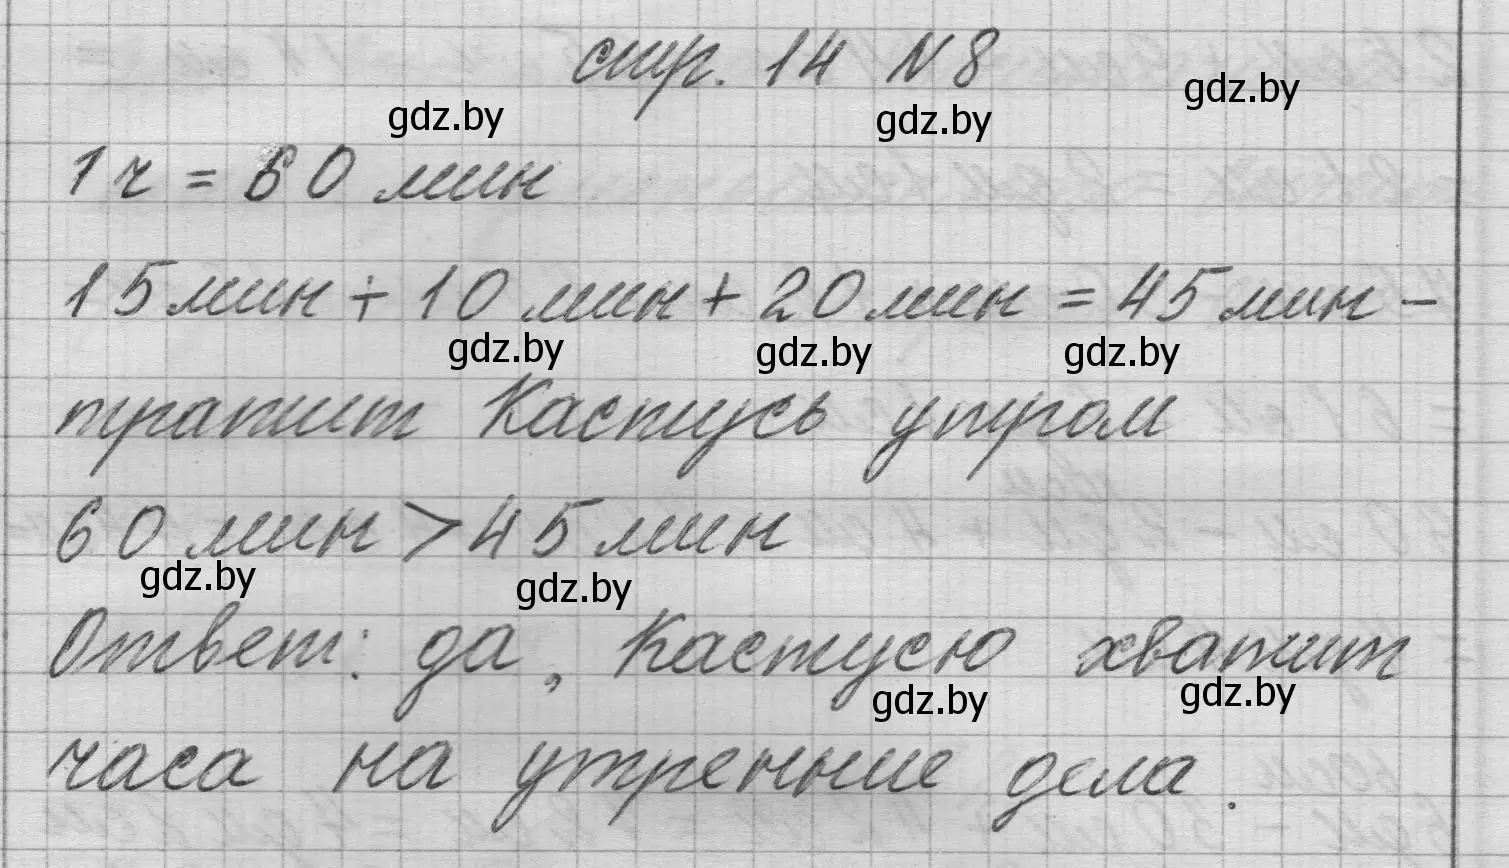 стр. 14 № 8
gdz.by
gdz.by gdz.by
1 ч = 60 мин
15 мин + 10 мин + 20 мин = 45 мин –
gdz.by gdz.by gdz.by
тратит Кастусь утром
60 мин > 45 мин
gdz.by gdz.by
Ответ: да, Кастусю хватит
gdz.by gdz.by
часа на утренние дела.